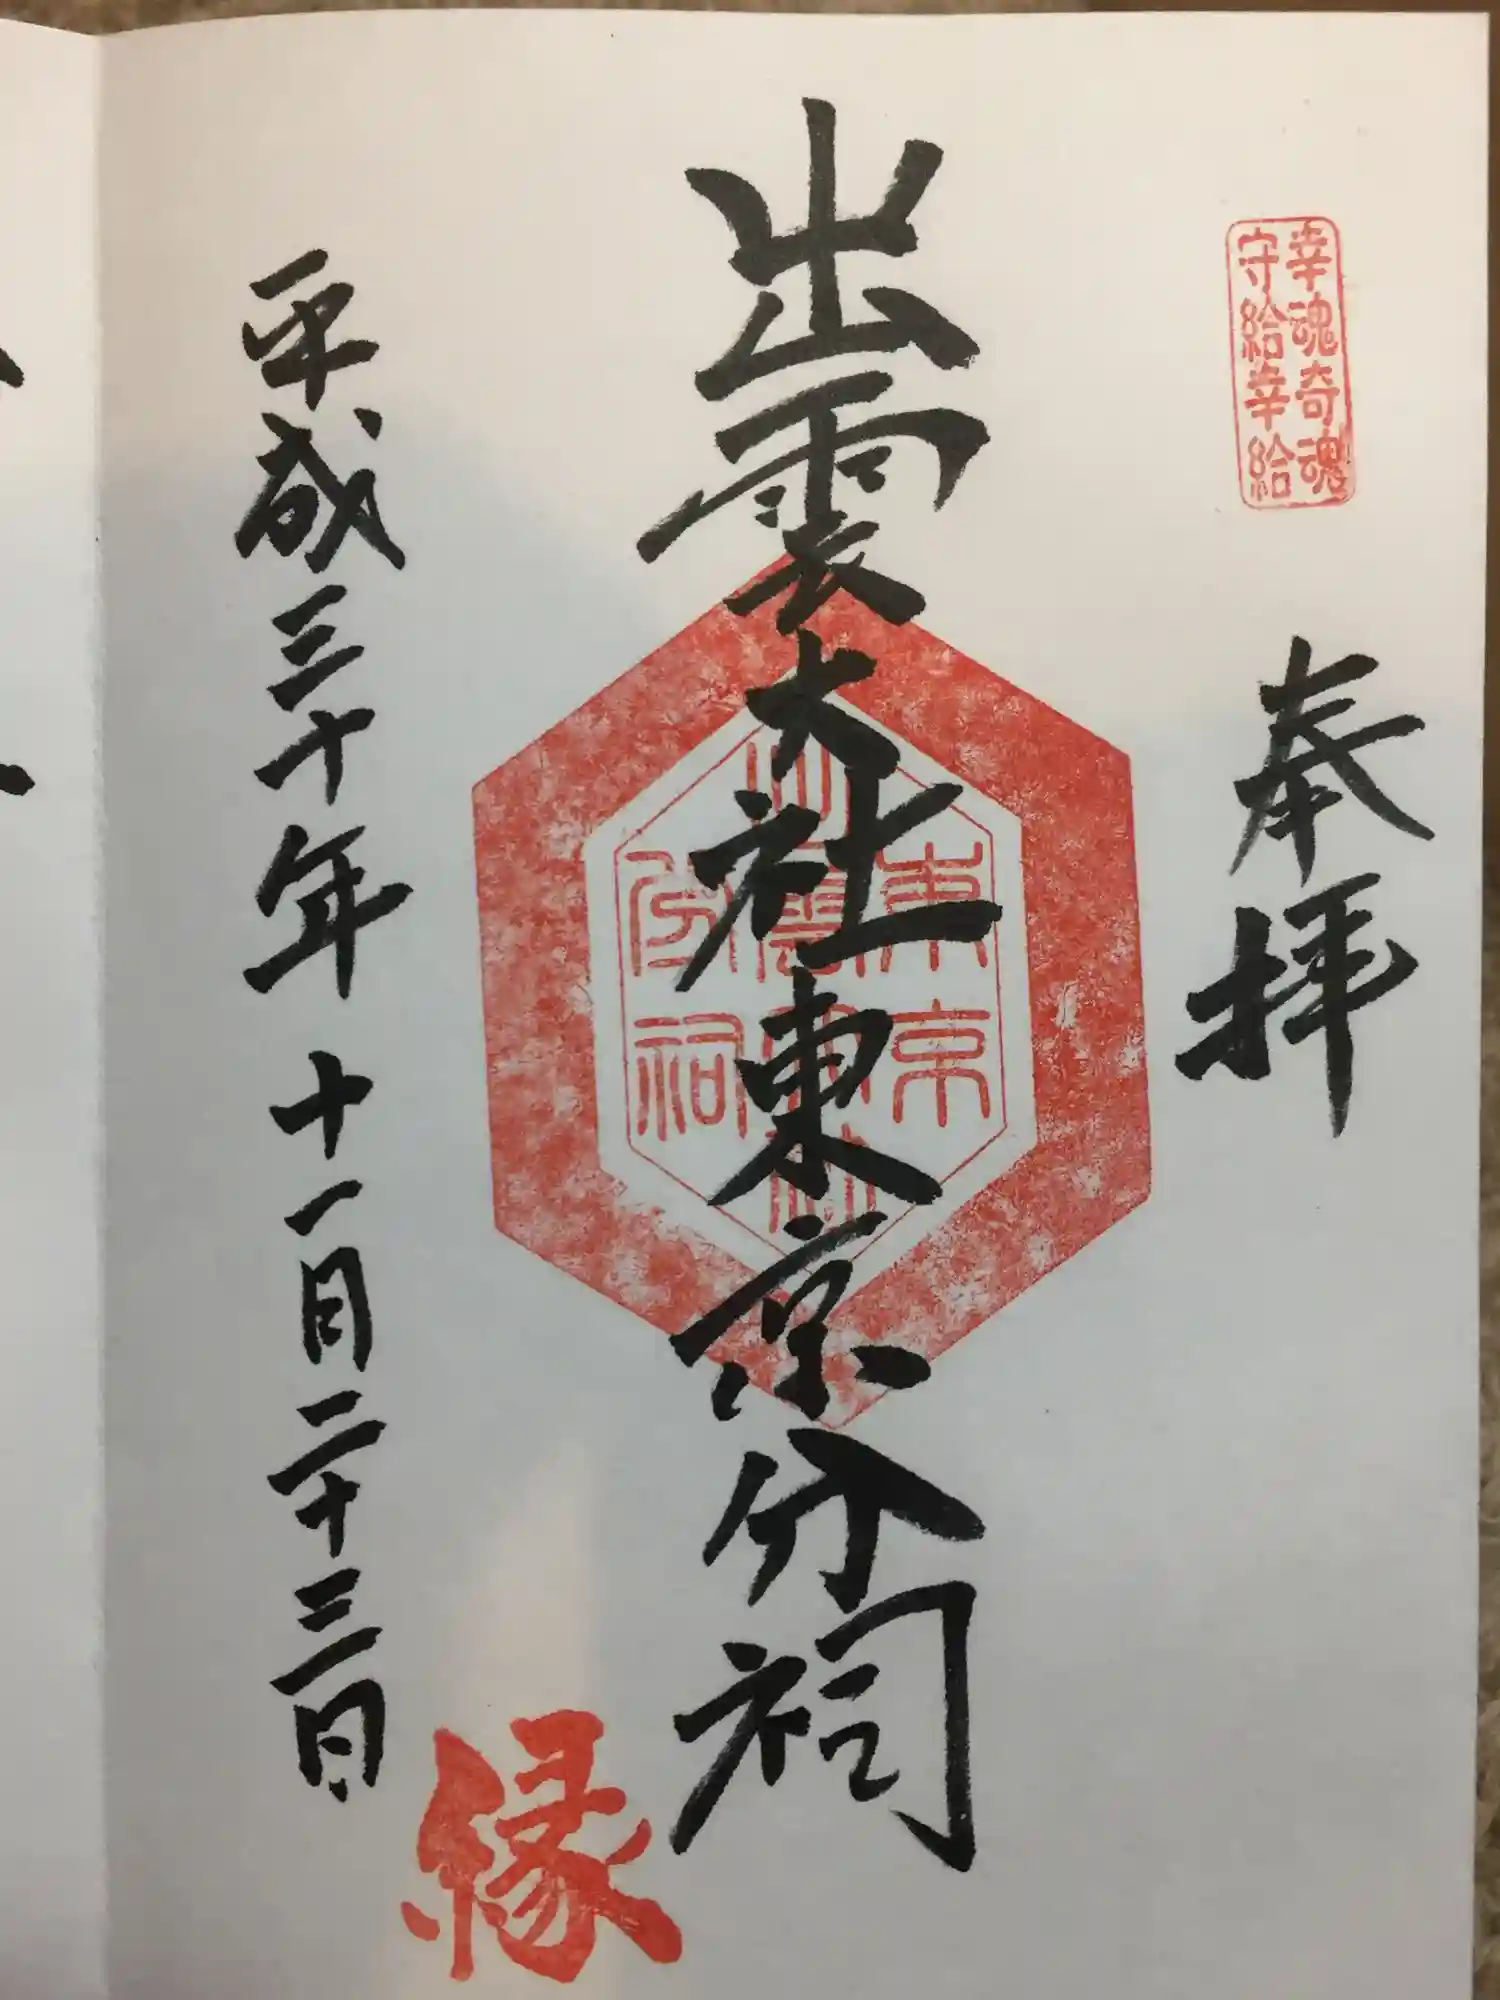 幸魂奇魂
守給幸給
奉拝
出雲大社東京分祠
東京
出雲大社
分祠
平成三十年十一月二十三日
縁